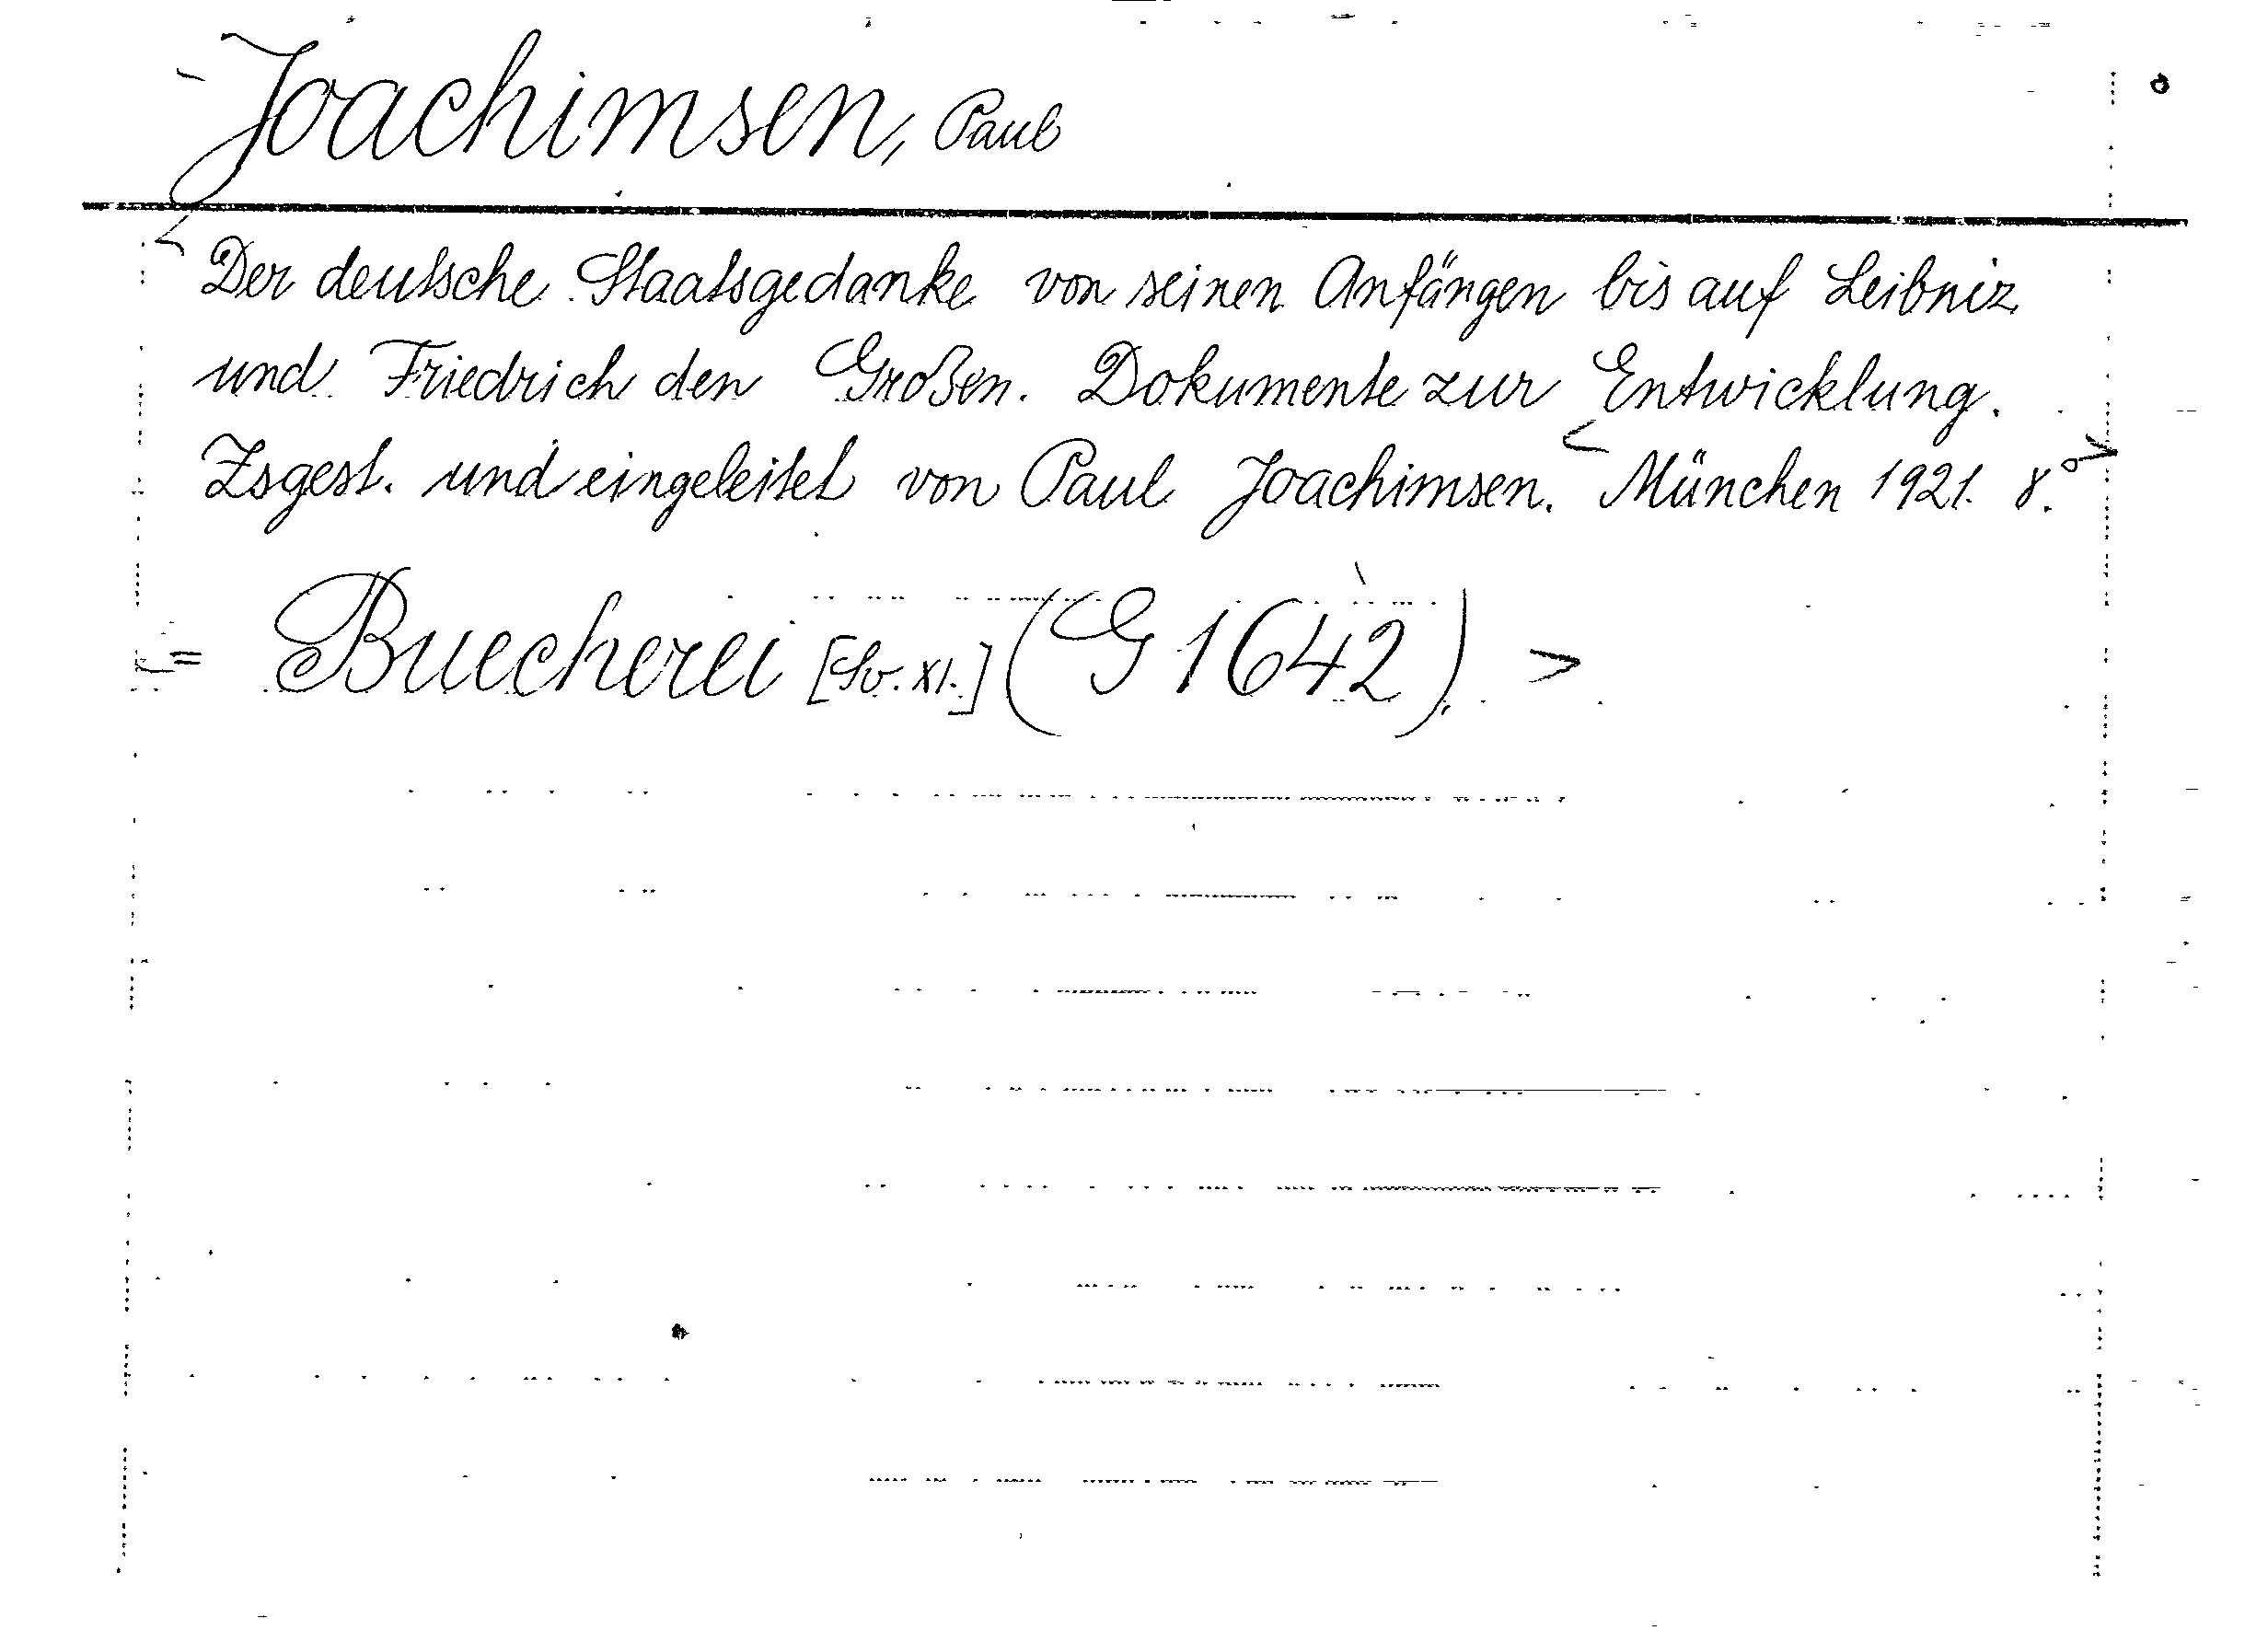 Joachimsen, Paul
Der deutsche Staatsgedanke von seinen Anfängen bis auf Leibniz
und Friedrich den Großen. Dokumente zur Entwicklung.
Zsgest. und eingeleitet von Paul Joachimsen. < München 1921. 8°. >
= Buecherei [XI.] (G 1642). >